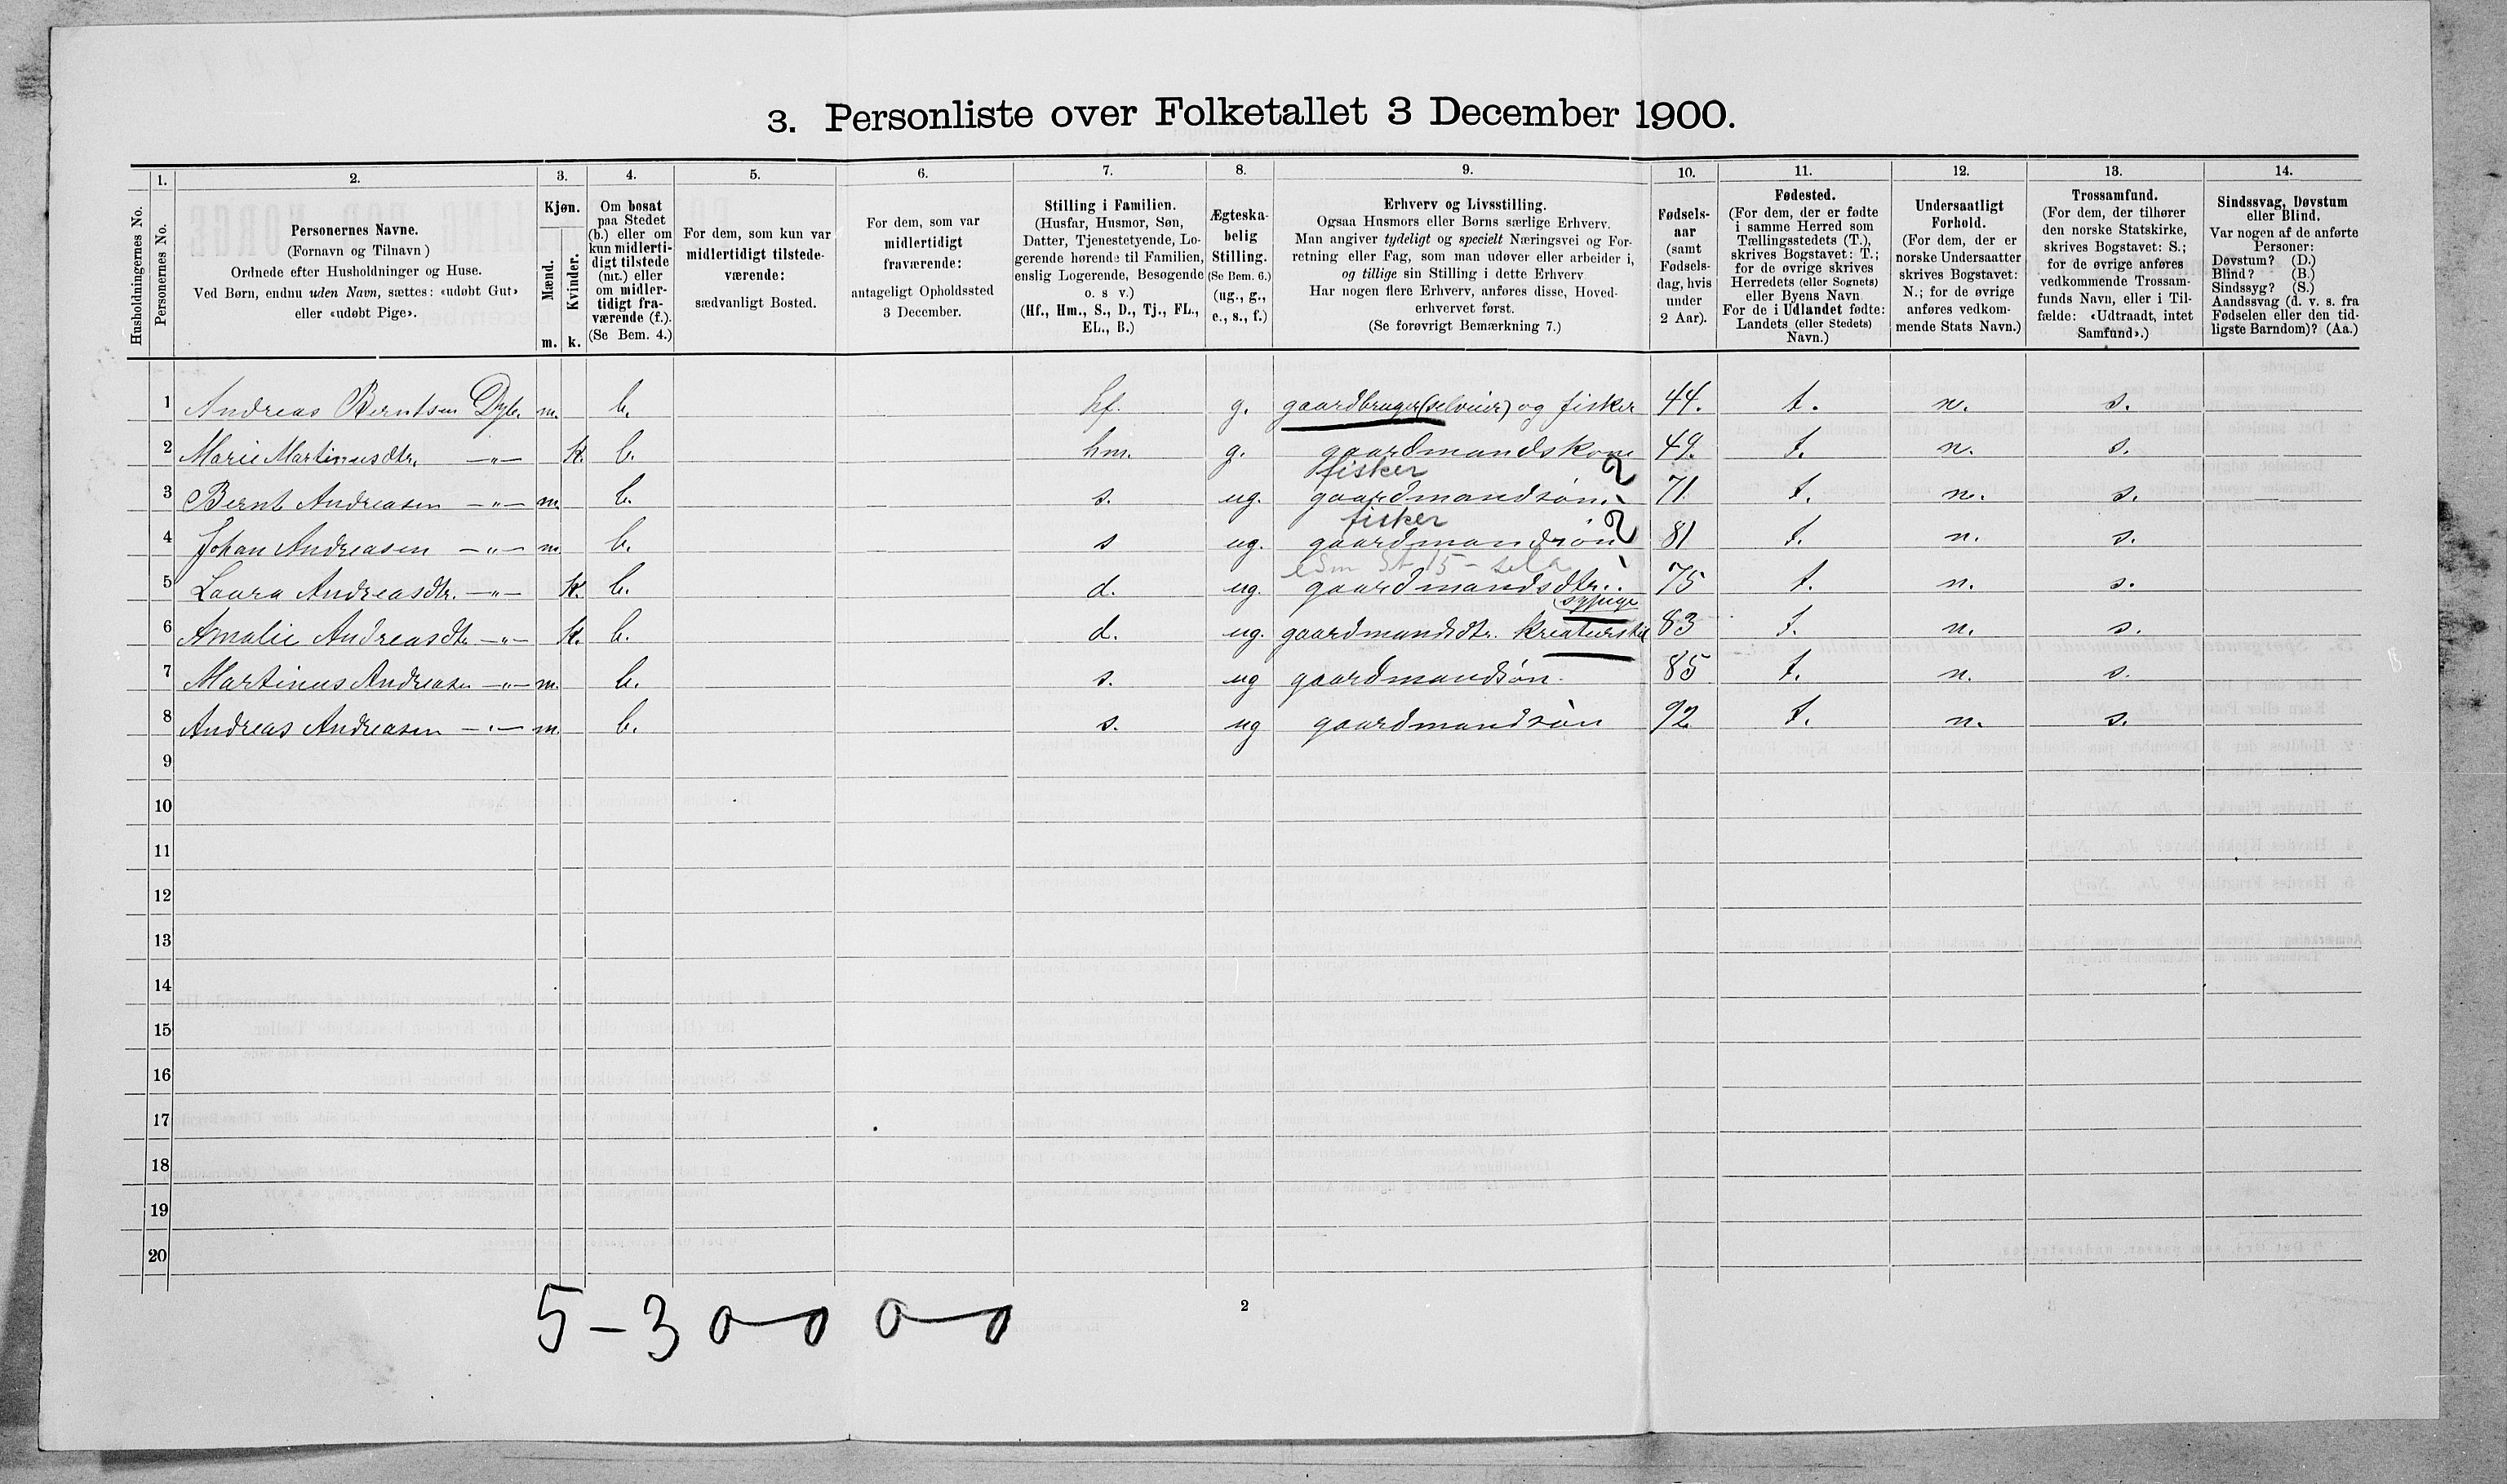 3. Personliste over Folketallet 3 December 1900.
Husholdningernes No.
1.
Personernes No.
2.
Personernes Navne.
(Fornavn og Tilnavn)
Ordnede efter Husholdninger og Huse.
Ved Børn, endnu uden Navn, sættes: «udøbt Gut»
eller «udøbt Pige».
3.
Kjøn.
Mænd.
Kvinder.
m. k.
4.
Om bosat
paa Stedet
(b.) eller om
kun midlerti-
digt tilstede
(mt.) eller
om midler-
tidigt fra-
værende (f.).
(Se Bem. 4.)
5.
For dem, som kun var
midlertidigt tilstede-
værende:
sædvanligt Bosted.
6.
For dem, som var
midlertidigt
fraværende:
antageligt Opholdssted
3 December.
7.
Stilling i Familien.
(Husfar, Husmor, Søn,
Datter, Tjenestetyende, Lo-
gerende hørende til Familien,
enslig Logerende, Besøgende
o. s v.)
(Hf., Hm., S., D., Tj., FL.,
EL., B.)
8.
Ægteska-
belig
Stilling.
(Se Bem. 6.)
(ug., g.,
e., s., f.)
9.
Erhverv og Livsstilling.
Ogsaa Husmors eller Børns særlige Erhverv.
Man angiver tydeligt og specielt Næringsvei og For-
retning eller Fag, som man udøver eller arbeider i,
og tillige sin Stilling i dette Erhverv
Har nogen flere Erhverv, anføres disse, Hoved-
erhvervet først.
(Se forøvrigt Bemærkning 7.)
10.
Fødsels-
aar
(samt
Fødsels-
dag, hvis
under
2 Aar).
11.
Fødested.
(For dem, der er fødte
i samme Herred som
Tællingsstedets (T.),
skrives Bogstavet: T.;
for de øvrige skrives
Herredets (eller Sognets)
eller Byens Navn
For de i Udlandet fødte:
Landets (eller Stedets)
Navn.)
12.
Undersaatligt
Forhold.
(For dem, der er
norske Undersaatter
skrives Bogstavet:
N.; for de øvrige
anføres vedkom-
mende Stats Navn.)
13.
Trossamfund.
(For dem, der tilhører
den norske Statskirke,
skrives Bogstavet: S.;
for de øvrige anføres
vedkommende Trossam-
funds Navn, eller i Til-
fælde: «Udtraadt, intet
Samfund».)
14.
Sindssvag, Døvstum
eller Blind.
Var nogen af de anførte
Personer:
Døvstum? (D.)
Blind? (B.)
Sindssyg? (S.)
Aandssvag (d. v. s. fra
Fødselen eller den tid-
ligste Barndom)? (Aa.)
1 Andreas Berntsen Dyb. m. b. hf. g. gaardbruger (selveier) og fisker 44. t. n. s.
2 Marie Martinusdtr. —"— k. b. hm. g. gaardmandskone 49. t. n. s.
fisker
3 Bernt Andreasen —"— m. b. s. ug. gaardmandsøn. 71. t. n. s.
fisker
4 Johan Andreasen —"— m. b. s ug. gaardmandsøn 81 t. n. s.
5 Laura Andreasdtr. —"— k. b. d. ug. gaardmandsdtr. 75 t. n. s.
sypige
6 Amalie Andreasdtr —"— k. b. d. ug. gaardmandsdtr. kreaturstel 83 t. n. s.
7 Martinus Andreasen —"— m. b. s. ug gaardmandsøn. 85 t. n. s.
8 Andreas Andreasen —"— m. b. s. ug gaardmandsøn 92 t. n. s.
9
10
11
12
13
14
15
16
17
18
19
20
5 – 3 0—0 0—0
2